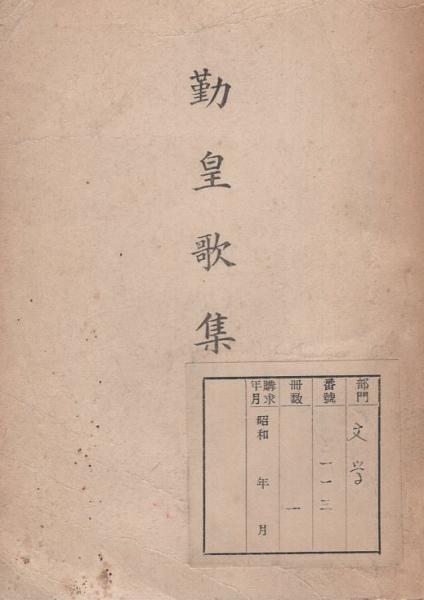 勤皇歌集
部門 文学
番號 一一三
冊数 一
購求年月 昭和 年 月